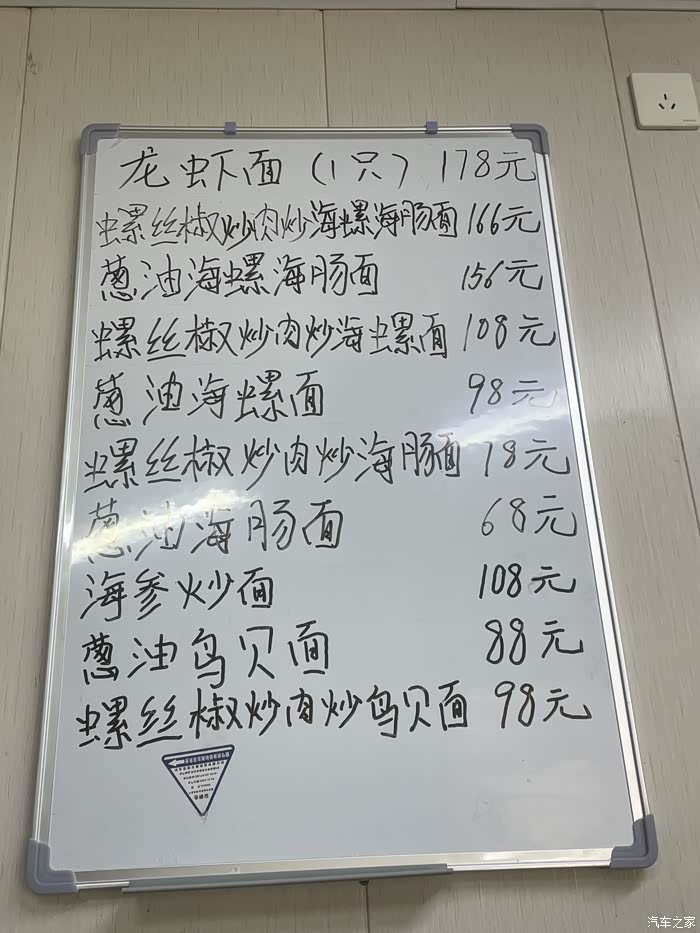 龙虾面（1只）178元
螺丝椒炒肉炒海螺海肠面 166元
葱油海螺海肠面 156元
螺丝椒炒肉炒海螺面 108元
葱油海螺面 98元
螺丝椒炒肉炒海肠面 78元
葱油海肠面 68元
海参炒面 108元
葱油鸟贝面 88元
螺丝椒炒肉炒鸟贝面 98元
汽车之家